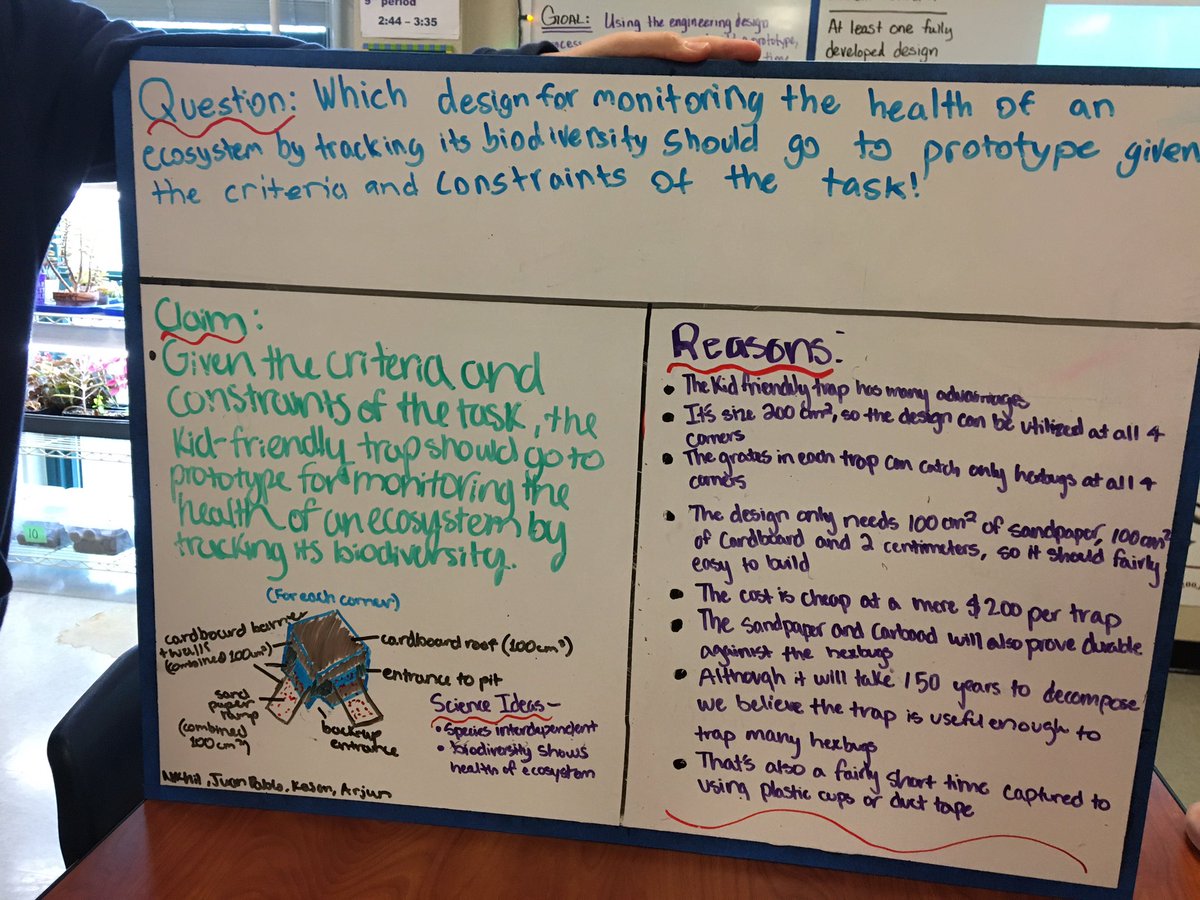 9th period
2:44 – 3:35
GOAL: Using the engineering design
prototype,
At least one fully
developed design
Question: Which design for monitoring the health of an
ecosystem by tracking its biodiversity should go to prototype given
the criteria and constraints of the task!
Claim:
• Given the criteria and
constraints of the task, the
kid-friendly trap should go to
prototype for monitoring the
health of an ecosystem by
tracking its biodiversity.
(For each corner)
cardboard barrier
+ walls
(combined 100cm²)
sand
paper
ramp
(combined
100cm²)
backup
entrance
cardboard roof (100cm²)
entrance to pit
Science Ideas-
• Species interdependent
• biodiversity shows
health of ecosystem
Nikhil, Juan Pablo, Keson, Arjun
Reasons:
• The Kid friendly trap has many advantages
• It's size 200 cm², so the design can be utilized at all 4
corners
• The grates in each trap can catch only hexbugs at all 4
corners
• The design only needs 100cm² of sandpaper, 100cm²
of cardboard and 2 centimeters, so it should fairly
easy to build
• The cost is cheap at a mere $200 per trap
• The sandpaper and Carboad will also prove durable
againist the hexbugs
• Although it will take 150 years to decompose
we believe the trap is useful enough to
trap many hexbugs
• That's also a fairly short time captured to
using plastic cups or duct tape
10